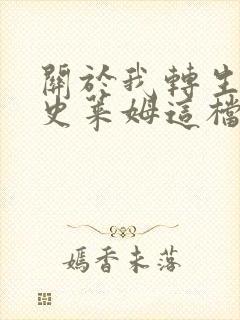 關於我轉生
史萊姆這檔
嫣香未落